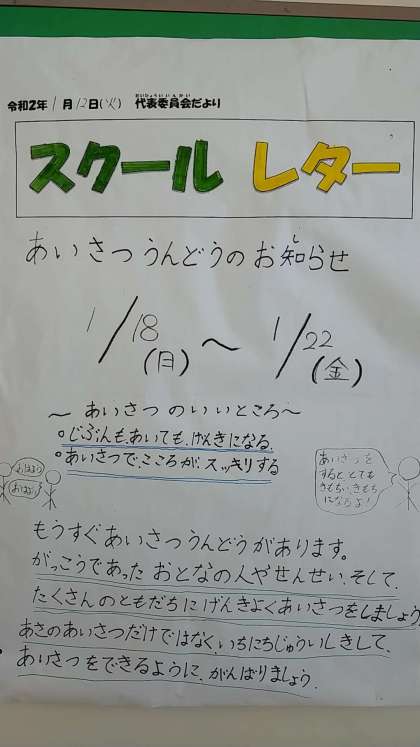 令和2年 1月12日(火) 代表委員会だより
だいひょういいんかい
スクール レター
あいさつうんどうのお知らせ
し
1/18(月)～1/22(金)
～ あいさつ のいいところ～
○じぶんも、あいても、げんきになる。
○あいさつで、こころが、スッキリする
おはよう
おはよう
あいさつを
すると、とても
きもちいきもち
になるよ!
もうすぐあいさつうんどうがあります。
がっこうであった おとなの人やせんせい、そして、
たくさんのともだちにげんきよくあいさつをしましょう
あさのあいさつだけではなく、いちにちじゅういしきして、
あいさつをできるように、がんばりましょう。